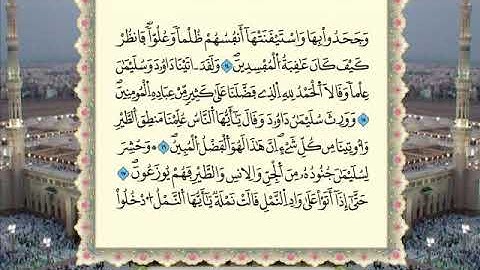 وَجَحَدُواْ بِهَا وَاسْتَيْقَنَتْهَا أَنفُسُهُمْ ظُلْماً وَعُلُوّاً فَانظُرْ
كَيْفَ كَانَ عَاقِبَةُ الْمُفْسِدِينَ ۝ وَلَقَدَ اتَيْنَا دَاوُدَ وَسُلَيْمَٰنَ
عِلْماً وَقَالَا اَلْحَمْدُ لِلهِ الذِے فَضَّلَنَا عَلَىٰ كَثِيرٍ مِّنْ عِبَادِهِ الْمُومِنِينَ
۝ وَوَرِثَ سُلَيْمَٰنُ دَاوُدَ وَقَالَ يَٰأَيُّهَا النَّاسُ عُلِّمْنَا مَنطِقَ الطَّيْرِ
وَأُوتِينَا مِن كُلِّ شَےْءٍ اِنَّ هَٰذَا لَهُوَ الْفَضْلُ الْمُبِينُ ۝ وَحُشِرَ
لِسُلَيْمَٰنَ جُنُودُهُ مِنَ الْجِنِّ وَالِانسِ وَالطَّيْرِ فَهُمْ يُوزَعُونَ ۝
حَتَّىٰ إِذَا أَتَوْاْ عَلَىٰ وَادِ النَّمْلِ قَالَتْ نَمْلَةٌ يَٰأَيُّهَا النَّمْلُ ادْخُلُواْ